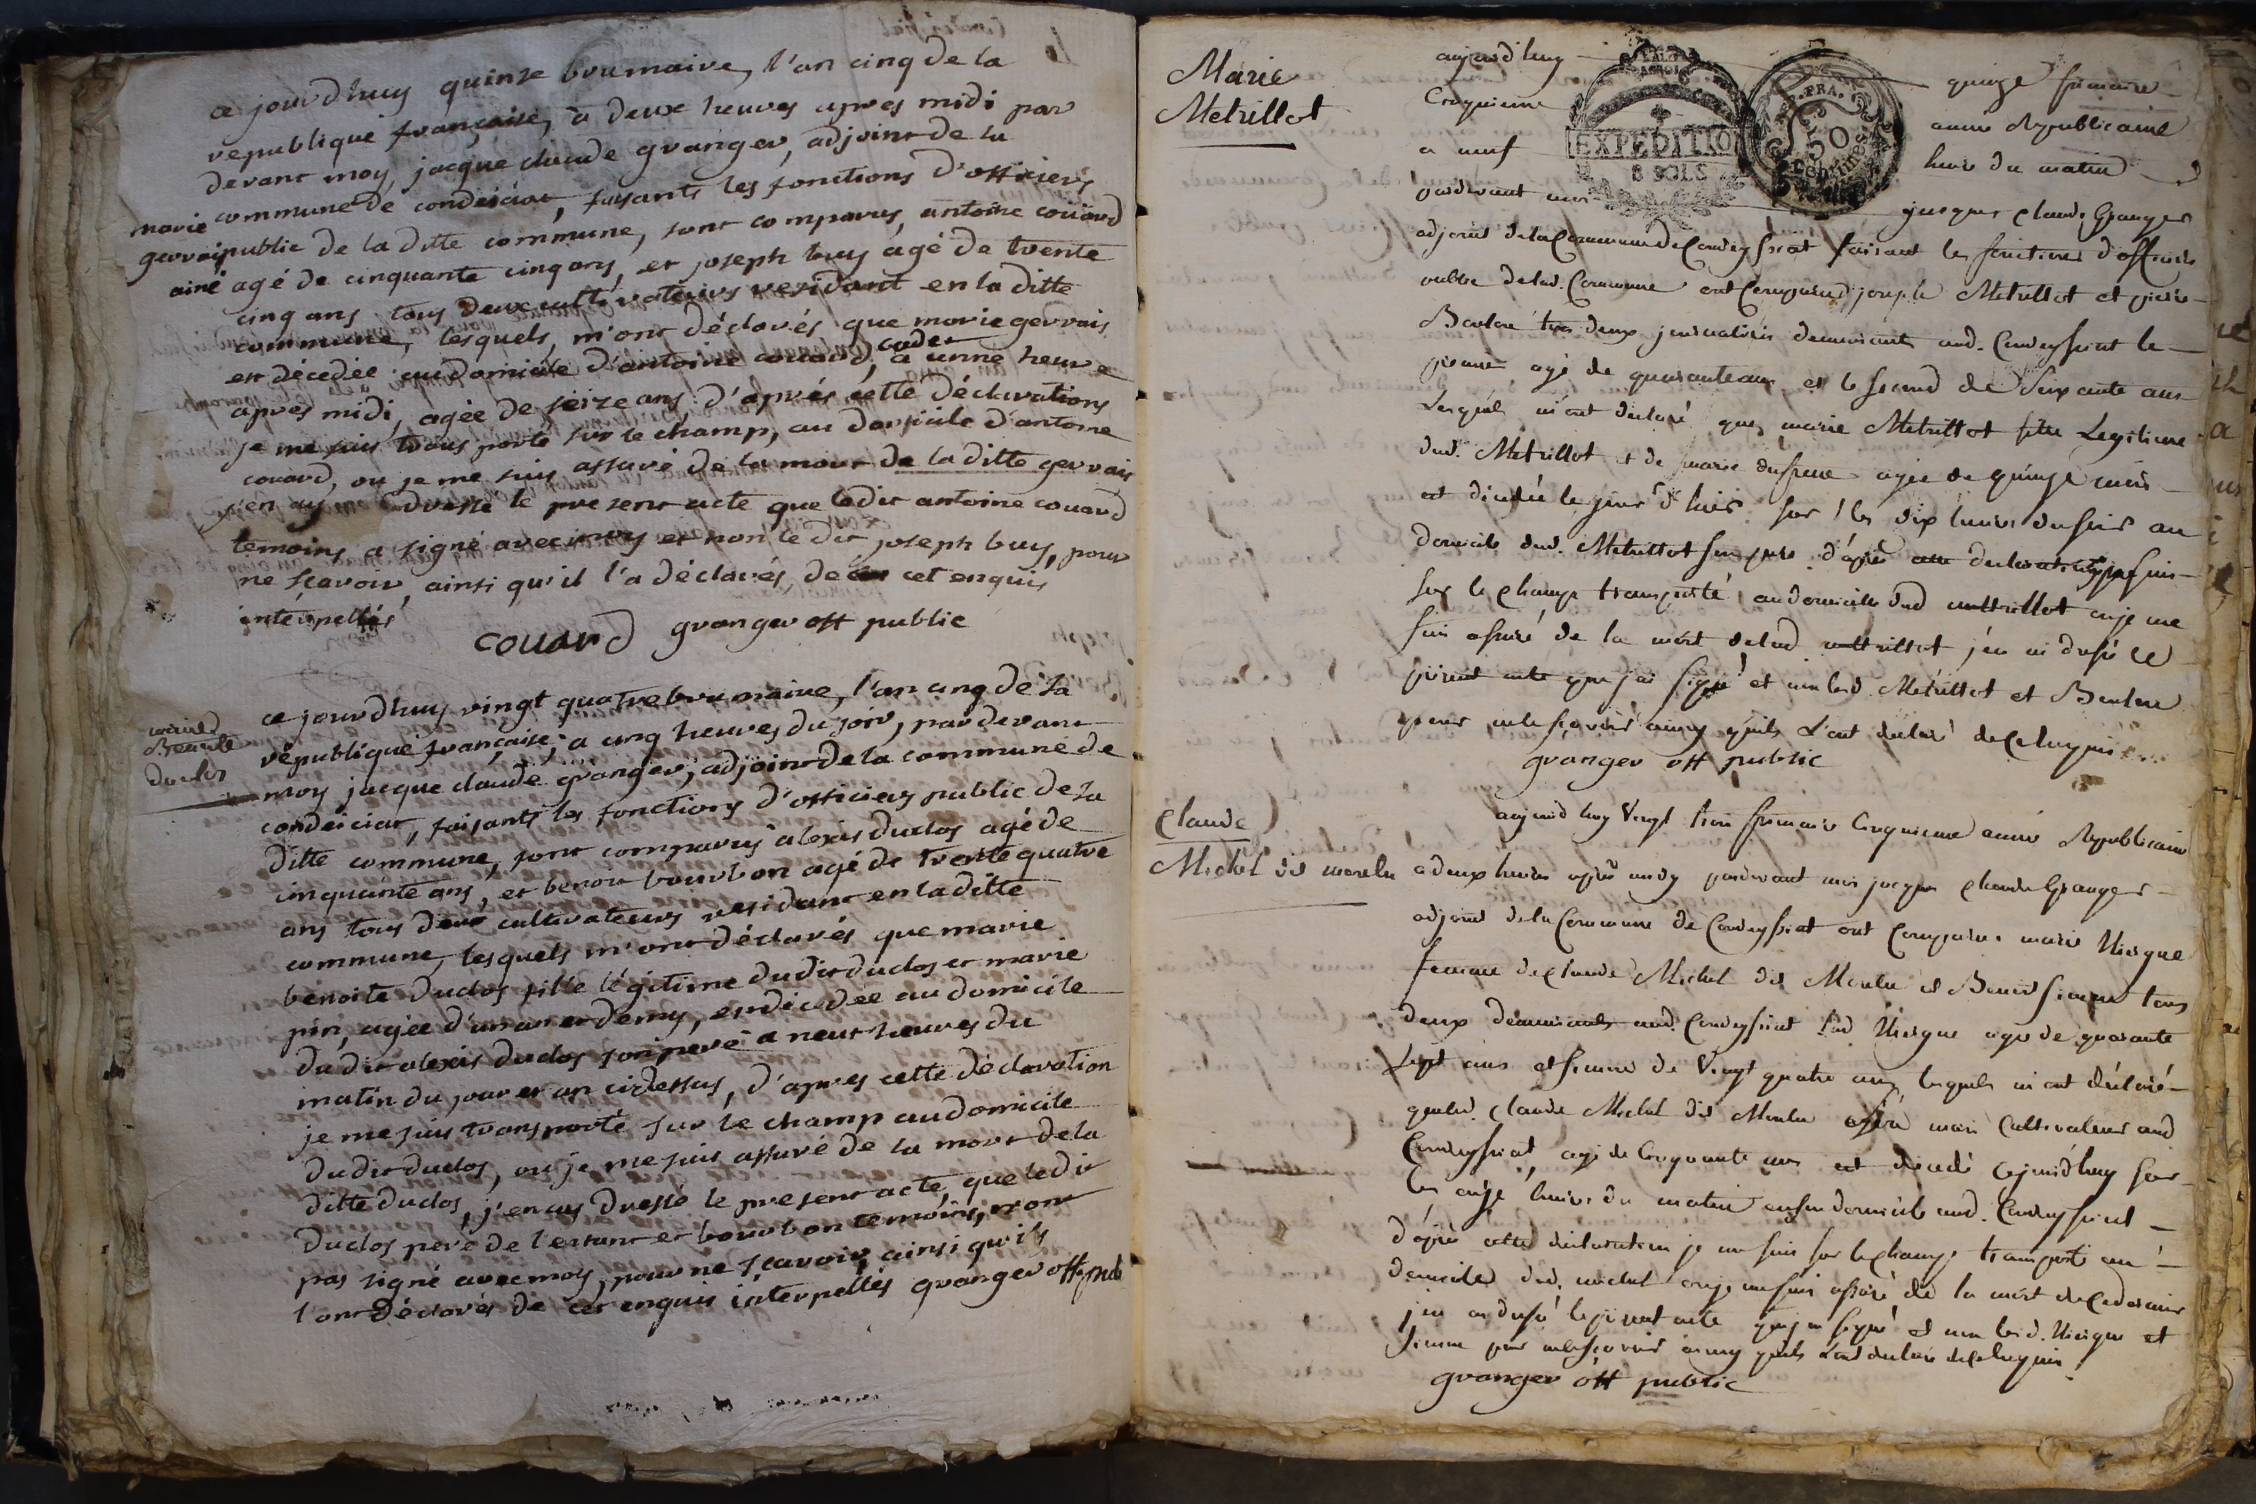 marie
gervais
ainé
ce jourdhuy quinze brumaire, l'an cinq de la
republique française, à deux heures apres midi par
devant moy, jacque claude granger, adjoint de la
commune de condeiciat, faisants les fonctions d'officiers
public de la ditte commune, sont comparus, antoine couard
agé de cinquante cinq ans, et joseph buy agé de trente
cinq ans tous deux cultivateurs residant en la ditte
commune, lesquels, m'ont déclarés que marie gervais
est décédée au domicile d'antoine couard, cadet à unne heure
apres midi, agée de seize ans d'aprés cette déclarations
je me suis trans porté sur le champ, au domicile d'antoine
couard, ou je me suis assuré de la mort de la ditte gervais
j'en ay dressé le present acte que ledit antoine couard
temoins a signé avec moy et non le dit joseph buy, pour
ne sçavoir, ainsi qu'il l'a déclarés, de cet enquis
interpellés
couard granger off public
marie
Benoite
duclos
ce jourdhuy vingt quatre brumaire, l'an cinq de la
république française, a cinq heures du soir, par devant
moy jacque claude granger, adjoint de la commune de
condeiciat, faisants les fonctions d'officiers public de la
ditte commune, sont comparus alexis duclos agé de
cinquante ans, et benoit bourbon agé de trente quatre
ans tous deux cultivateurs residant en la ditte
commune, lesquels m'ont déclarés que marie
benoite duclos fille légitime dudit duclos et marie
pin, agée d'un an et demy, est dicedée au domicile
du dit alexis duclos son pere a neuf heures du
matin du jour et an cidessus, d'apres cette déclaration
je me suis transporté sur le champ au domicile
dudit duclos, ou je me suis assuré de la mort de la
ditte duclos, j'en ay dressé le present acte, que ledit
duclos pere de l'enfant et bourbon temoins, n'ont
pas signé avec moy, pour ne sçavoir, ainsi qu'ils
l'ont déclarés de cet enquis interpellés granger off pub
Marie
Metrillot
aujourd huy quinze frimaire
Cinquieme année Republicaine
a neuf heures du matin
pardevant moi jacques claude Granger
adjoint de la Commune de Condeyssiat faisant les fonctions d'officier
public de lad. Commune ont Comparus joseph Metrillot et pierre
Boulon tous deux journaliers demeurants aud. Condeyssiat le
premier agé de quarante ans et le second de soixante ans
Lesquels m'ont declaré que marie Metrillot fille Legitime
dud. Metrillot et de marie dufrene agée de quinze mois
est dicedée le jour d'hier sur les dix heures du soir au
domicile dud. Metrillot son pere d'après declaration je me suis
sur le champ transporté au domicile dud metrillot ou je me
suis assuré de la mort delad metrillot j'en ai dressé le
présent acte que j'ai signé et non lesd. Metrillot et Boulon
pour ne le sçavoir ainsy qu'ils L'ont declaré de ce enquis
granger off public
Claude
Michel dit morelu
aujourd huy Vingt trois frimaire Cinquieme année Republicaine
a deux heures après midy pardevant moi jacques claude Granger
adjoint de la Commune de Condeyssiat ont Comparus marie
femme de claude Michel dit et Benoit tous
deux demeurants aud. Condeyssiat lad agée de quarante
sept ans et de Vingt quatre ans lesquels m'ont déclaré
queled. claude Michel dit mari Cultivateur aud
Condeyssiat, agé de Cinquante ans est dicedé cejourd'huy sur
les onze heures du matin en son domicile aud. Condeyssiat
d'après cette declaration je me suis sur le champ transporté au
domicile dud. michel ou je me suis assuré de la mort de ce dernier
j'en ai dressé le présent acte que j'ai signé et non lesd. et
pour ne le sçavoir ainsy qu'ils L'ont declaré de ce enquis
granger off public
EXPEDITIO
8 SOLS
REP. FRA.
50
Centimes